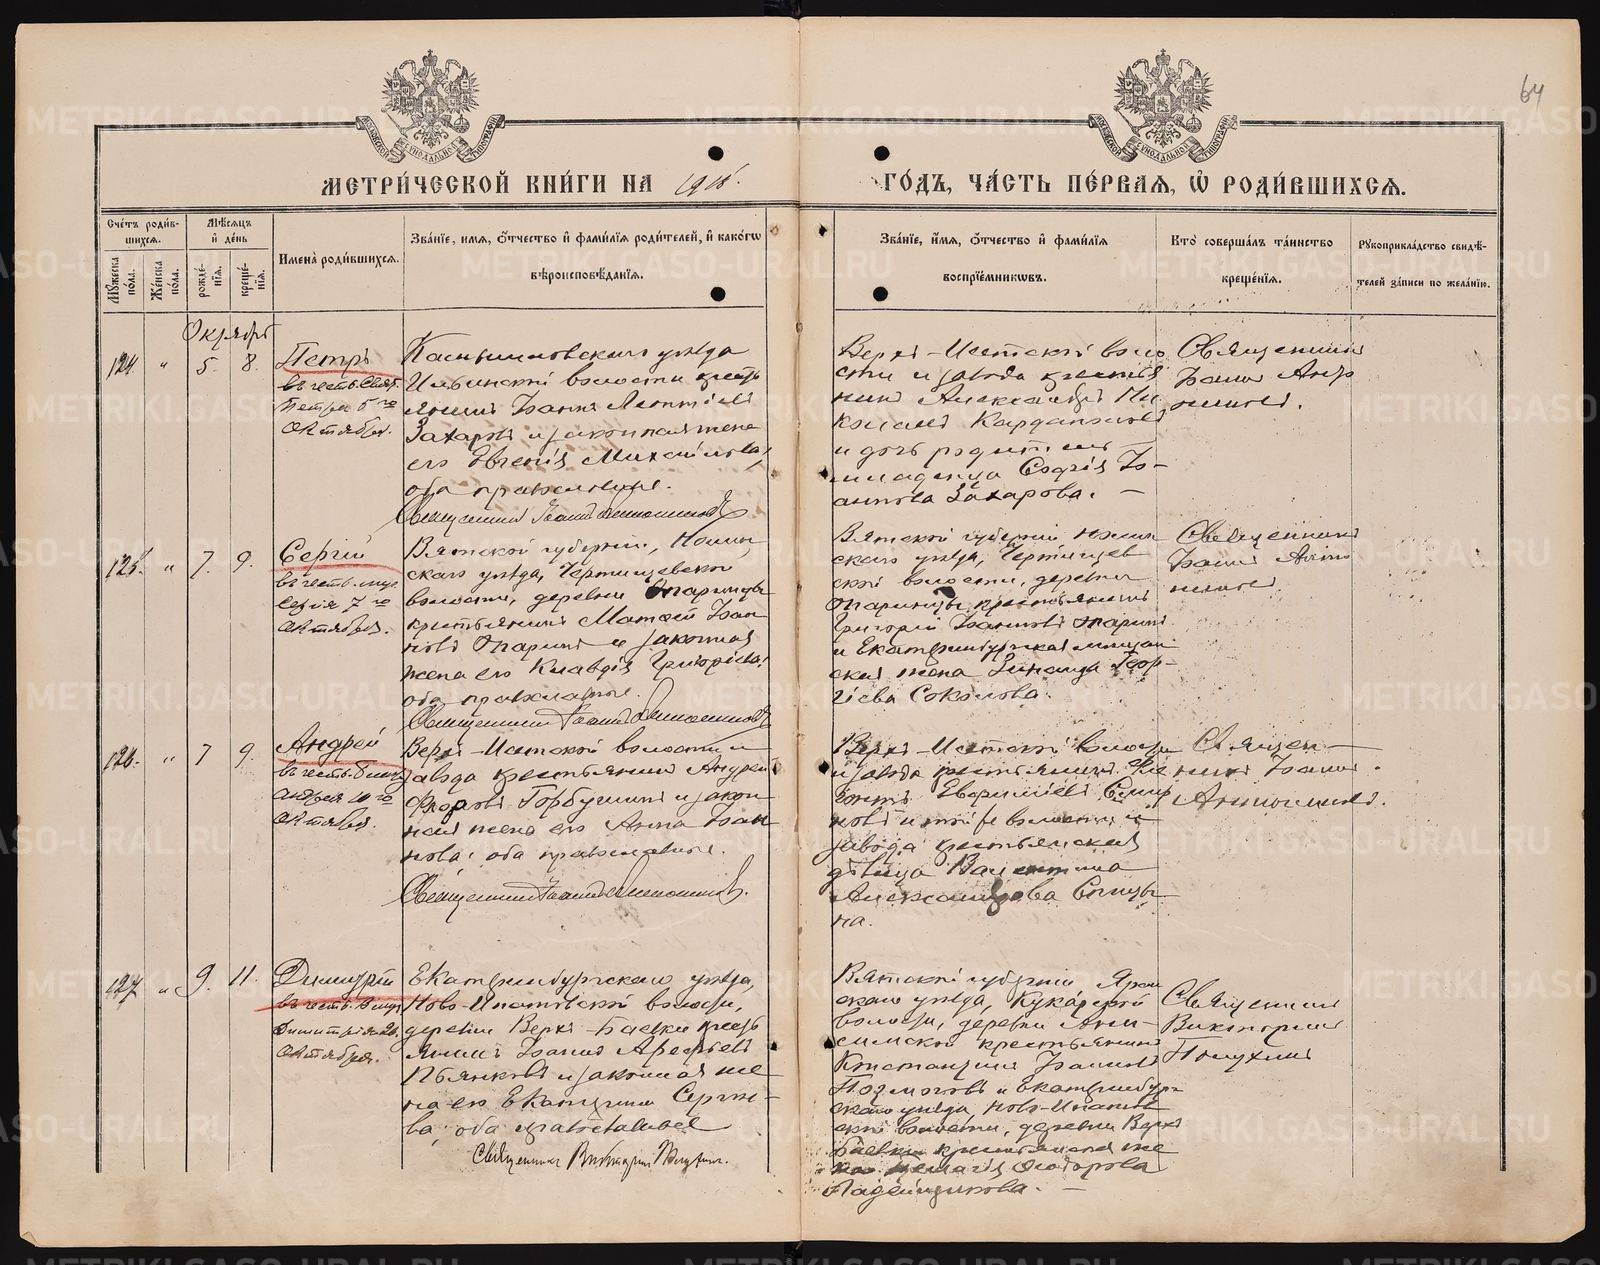 64
МЕТРИ́ЧЕСКОЙ КНИ́ГИ НА 1915.
ГО́ДЪ, ЧА́СТЬ ПЕ́РВАЯ, Ѽ РОДИ́ВШИХСЯ.
Сче́тъ роди́вшихся.
Мѣ́сяцъ и̂ де́нь
Мꙋ́жеска по́ла.
Же́нска по́ла.
рожде́нїя.
креще́нїя.
Имена̀ роди́вшихся.
Зва́нїе, и́мя, ѻ́тчество и̂ фами́лїя роди́телей, и̂ како́гѡ
вѣроисповѣ́данїя.
Зва́нїе, и́мя, ѻ́тчество и̂ фами́лїя
воспрїе́мникѡвъ.
Кто̀ соверша́лъ та́инство
креще́нїя.
Рꙋкоприкла́дство свидѣ́-
телей за́писи по жела́нїю.
Октябрь
124 " 5. 8.
Петръ
въ честь Свят.
Петра 5го
октября.
уѣзда
Ильинской волости кресть
янинъ Іоаннъ Леонтіевъ
Захаровъ и законная жена
его Евгенія Михайлова,
оба православные.
Священникъ Іоаннъ
Верхъ-Исетской воло
сти и завода крестья
нинъ Александръ Ни
колаевъ
и дочь родителей
младенца Софія Іо-
аннова Захарова. —
Священникъ
Іоаннъ
125. " 7. 9.
Сергій
въ честь муч.
Сергія 7го
октября.
Вятской губерніи, Нолин
скаго уѣзда,
волости, деревни
крестьянинъ Матѳей Іоан
новъ Опаринъ и законная
жена его Клавдія Григоріева,
оба православные.
Священникъ Іоаннъ
Вятской губерніи, Нолин
скаго уѣзда,
ской волости, деревни
крестьянинъ
Григорій Іоанновъ Опаринъ
и Екатеринбургская мѣщан
ская жена Зинаида Геор-
гіева Соколова.
Священникъ
Іоаннъ
126. " 7 9.
Андрей
въ честь
Андрея 10го
октября.
Верхъ-Исетской волости и
завода крестьянинъ Андрей
Ѳедоровъ Горбунинъ и закон
ная жена его Анна Іоан
нова, оба православные.
Священникъ Іоаннъ
Верхъ-Исетской волости
и завода крестьянинъ
новъ и той же волости и
завода крестьянская
дѣвица Валентина
Александрова Спицы
на.
Священ-
никъ Іоаннъ
127 " 9. 11.
Димитрій
въ честь
Димитрія 26
октября.
Екатеринбургскаго уѣзда,
Ново-Ипатовской волости,
деревни Верхъ-Баевки кресть
янинъ Іоаннъ Арефьевъ
Пьянковъ и законная же
на его Екатерина Сергѣе-
ва, оба православные
Священникъ Викторинъ
Вятской губерніи Яран
скаго уѣзда, Кукарской
волости, деревни Ани-
симской крестьянинъ
Константинъ Іоанновъ
и Екатеринбург
скаго уѣзда, Ново-Ипатов
ской волости, деревни Верхъ
Баевки крестьянская же
на Пелагія Ѳеодорова
Священникъ
Викторинъ